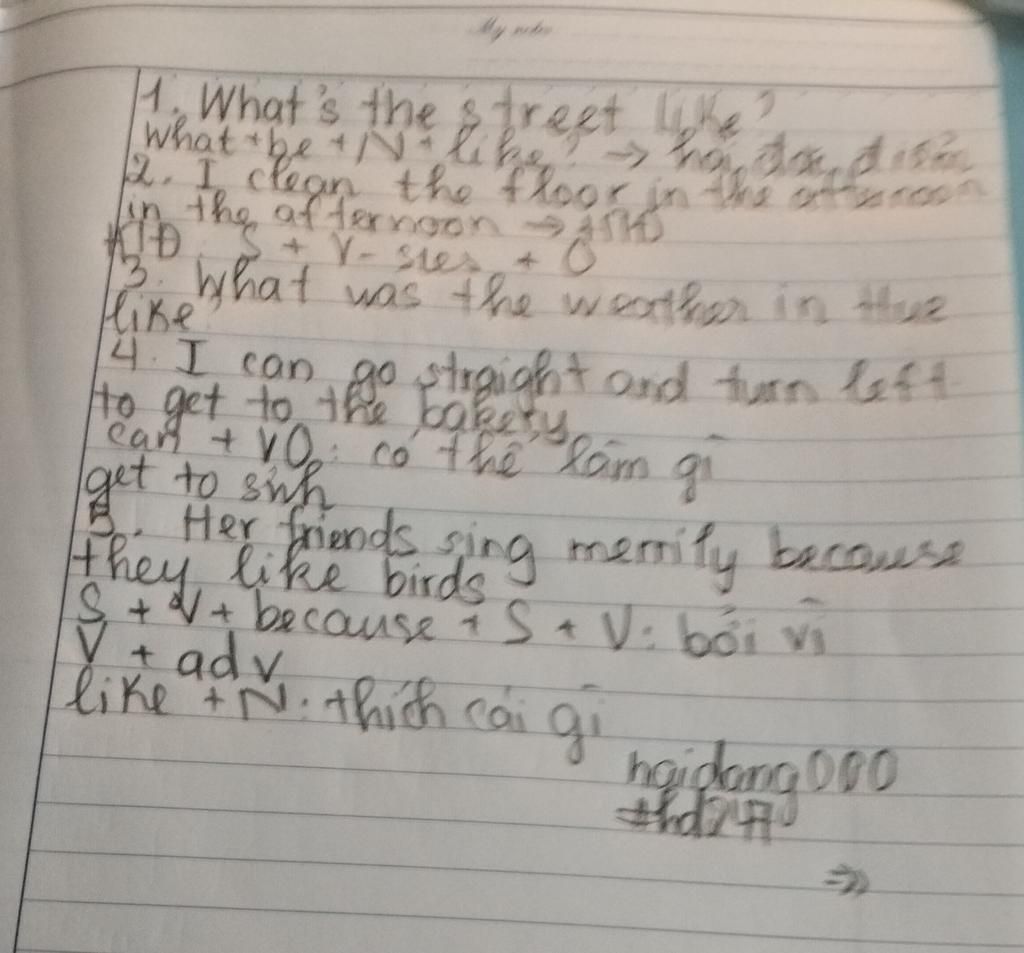 My notes
1. What's the street like?
What + be + N + like? → hỏi đặc điểm
2. I clean the floor in the afternoon
in the afternoon → HTĐ
KĐ: S + V-s/es + O
3. What was the weather in Hue
like?
4. I can go straight and turn left
to get to the bakery
can + VO: có thể làm gì
get to swh
5. Her friends sing merrily because
they like birds
S + V + because + S + V: bởi vì
V + adv
like + N: thích cái gì
haidang000
#hd247
⇒